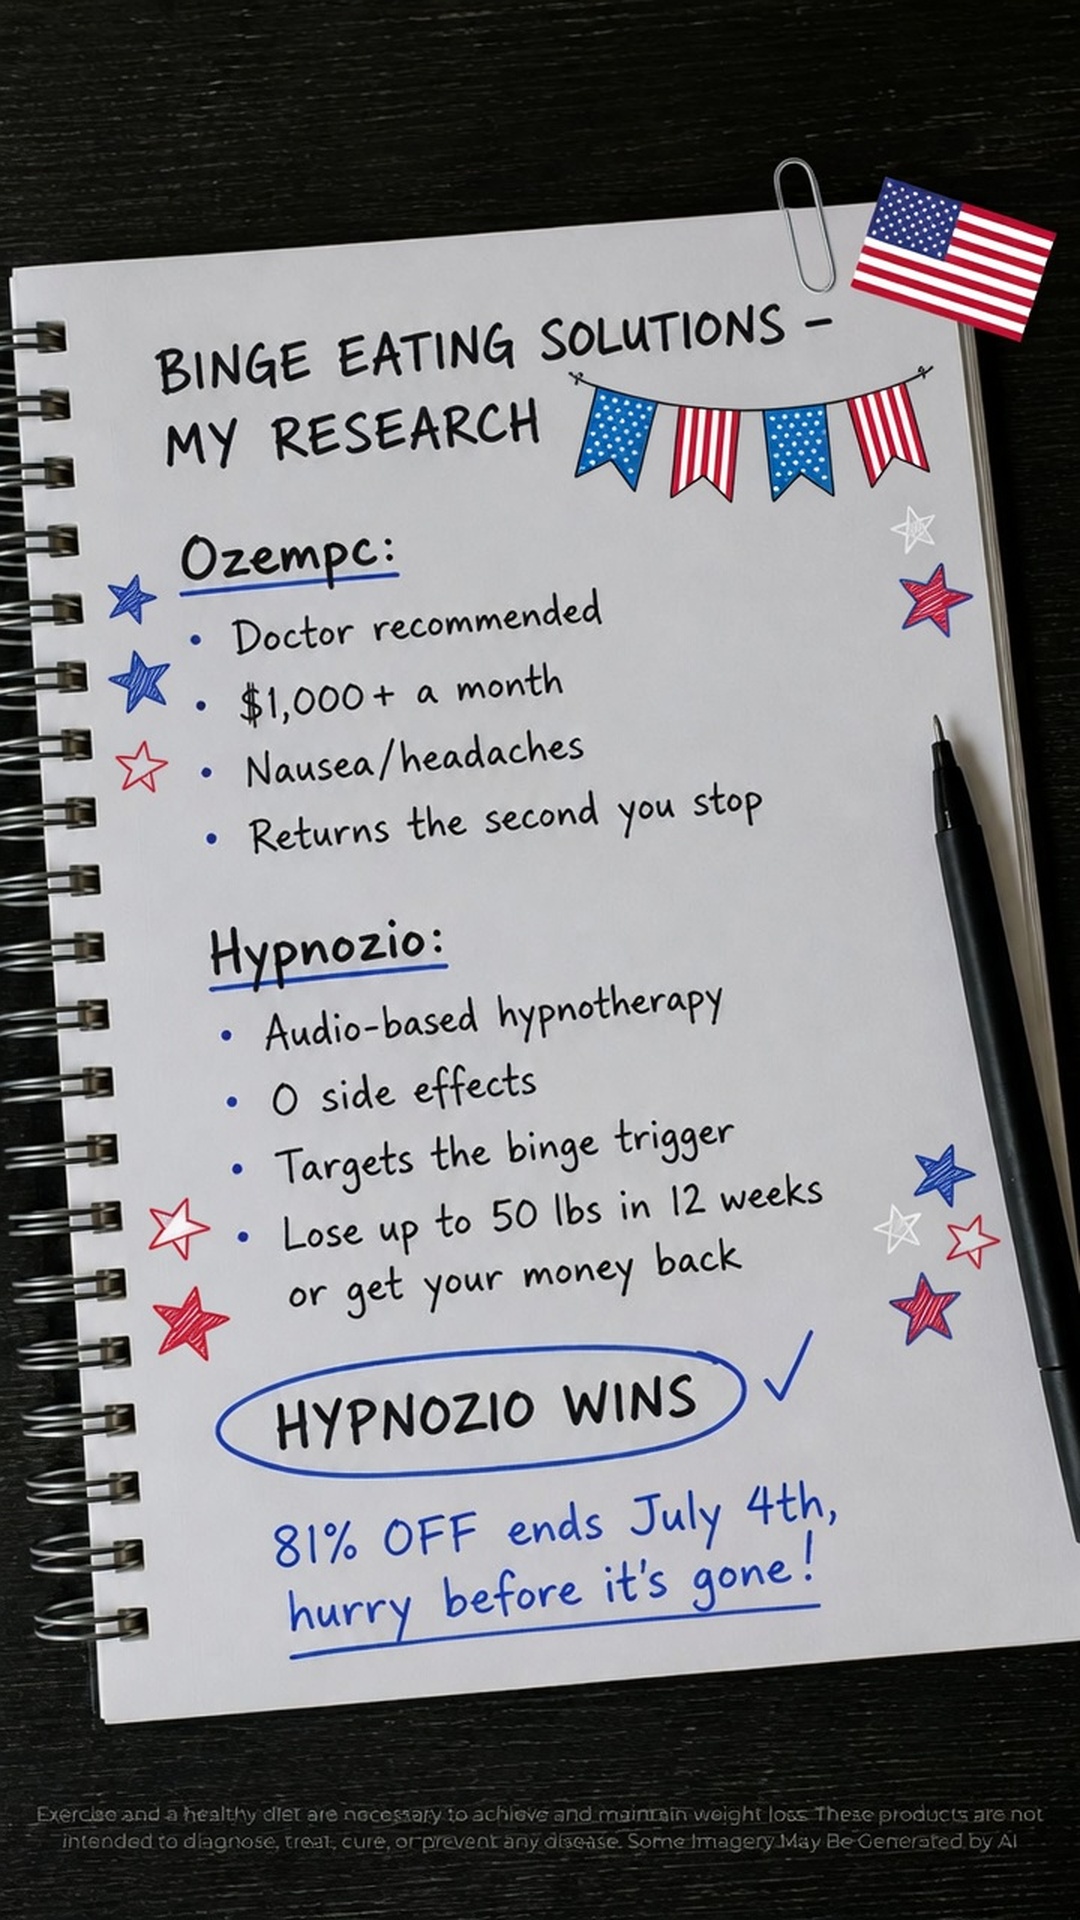 BINGE EATING SOLUTIONS –
MY RESEARCH
Ozempc:
• Doctor recommended
• $1,000+ a month
• Nausea/headaches
• Returns the second you stop
Hypnozio:
• Audio-based hypnotherapy
• 0 side effects
• Targets the binge trigger
• Lose up to 50 lbs in 12 weeks
or get your money back
HYPNOZIO WINS ✓
81% OFF ends July 4th,
hurry before it's gone!
Exercise and a healthy diet are necessary to achieve and maintain weight loss. These products are not
intended to diagnose, treat, cure, or prevent any disease. Some Imagery May Be Generated by AI